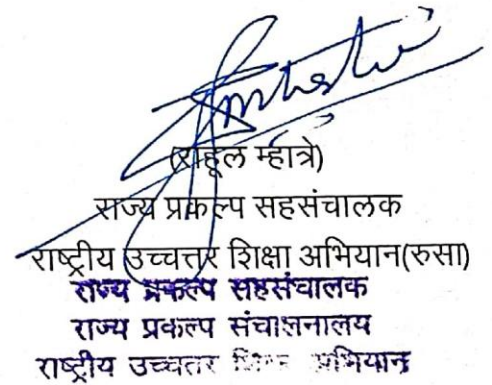 (राहूल म्हात्रे)
राज्य प्रकल्प सहसंचालक
राष्ट्रीय उच्चत्तर शिक्षा अभियान(रुसा)
राज्य प्रकल्प सहसंचालक
राज्य प्रकल्प संचालनालय
राष्ट्रीय उच्चतर शिक्षा अभियान